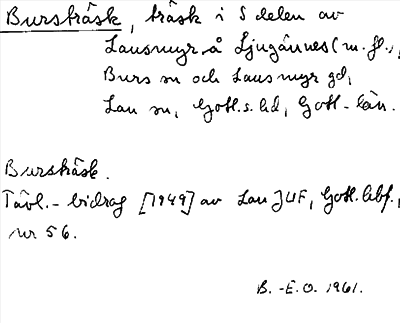 Bursträsk, träsk i S delen av
Lausmyr å Ljugännes (m. fl.,
Burs sn och Lausmyr gd,
Lau sn, Gotl. s. hd, Gotl-län.
Bursträsk.
Tävl.-bidrag [1949] av Lau JUF, Gotl. hbf.,
nr 56.
B.-E.O. 1961.